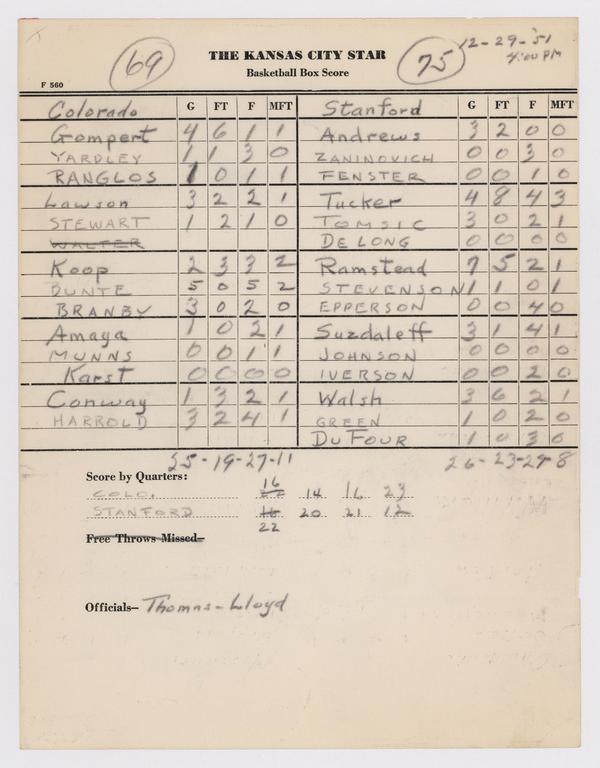 69 THE KANSAS CITY STAR 75 12-29-'51
Basketball Box Score 4:00 PM
F 560
Colorado G FT F MFT Stanford G FT F MFT
Gompert 4 6 1 1 Andrews 3 2 0 0
YARDLEY 1 1 3 0 ZANINOVICH 0 0 3 0
RANGLOS 1 0 1 1 FENSTER 0 0 1 0
Lawson 3 2 2 1 Tucker 4 8 4 3
STEWART 1 2 1 0 TOMSIC 3 0 2 1
WALTER DE LONG 0 0 0 0
Koop 2 3 3 2 Ramstead 7 5 2 1
BUNTE 5 0 5 2 STEVENSON 1 1 0 1
BRANBY 3 0 2 0 EPPERSON 0 0 4 0
Amaya 1 0 2 1 Suzdaleff 3 1 4 1
MUNNS 0 0 1 1 JOHNSON 0 0 0 0
Karst 0 0 0 0 IVERSON 0 0 2 0
Conway 1 3 2 1 Walsh 3 6 2 1
HARROLD 3 2 4 1 GREEN 1 0 2 0
DU FOUR 1 0 3 0
25-19-27-11 26-23-29-8
Score by Quarters: 16
COLO. 14 16 23
STANFORD 16 20 21 12
22
Free Throws Missed—
Officials— Thomas - Lloyd